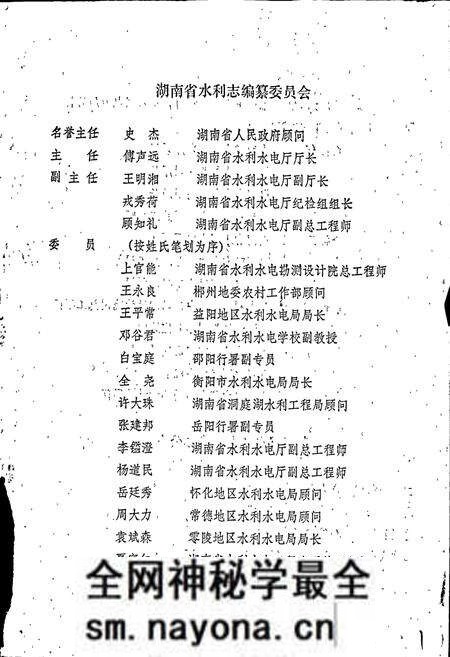 湖南省水利志编纂委员会
名誉主任 史杰 湖南省人民政府顾问
主任 傅声远 湖南省水利水电厅厅长
副主任 王明湘 湖南省水利水电厅副厅长
戎秀荷 湖南省水利水电厅纪检组组长
顾知礼 湖南省水利水电厅副总工程师
委员 (按姓氏笔划为序)
上官能 湖南省水利水电勘测设计院总工程师
王永良 郴州地委农村工作部顾问
王平常 益阳地区水利水电局局长
邓谷君 湖南省水利水电学校副教授
白宝庭 邵阳行署副专员
全尧 衡阳市水利水电局局长
许大珠 湖南省洞庭湖水利工程局顾问
张建邦 岳阳行署副专员
李镏澄 湖南省水利水电厅副总工程师
杨道民 湖南省水利水电厅副总工程师
岳廷秀 怀化地区水利水电局顾问
周大力 常德地区水利水电局顾问
袁斌森 零陵地区水利水电局局长
全网神秘学最全
sm.nayona.cn